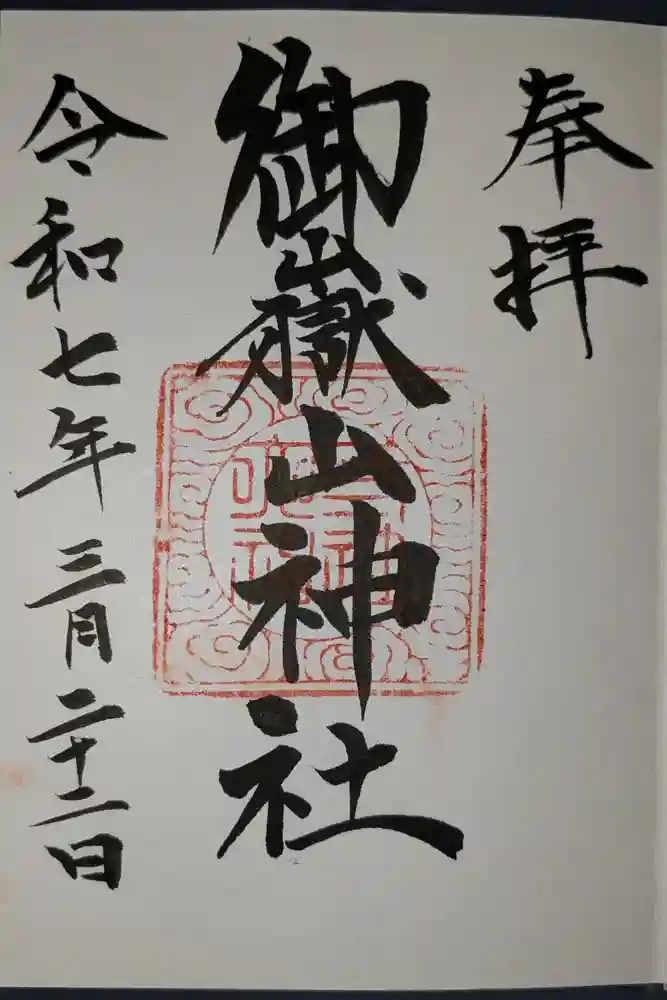 奉拝
御嶽山神社
令和七年三月二十二日